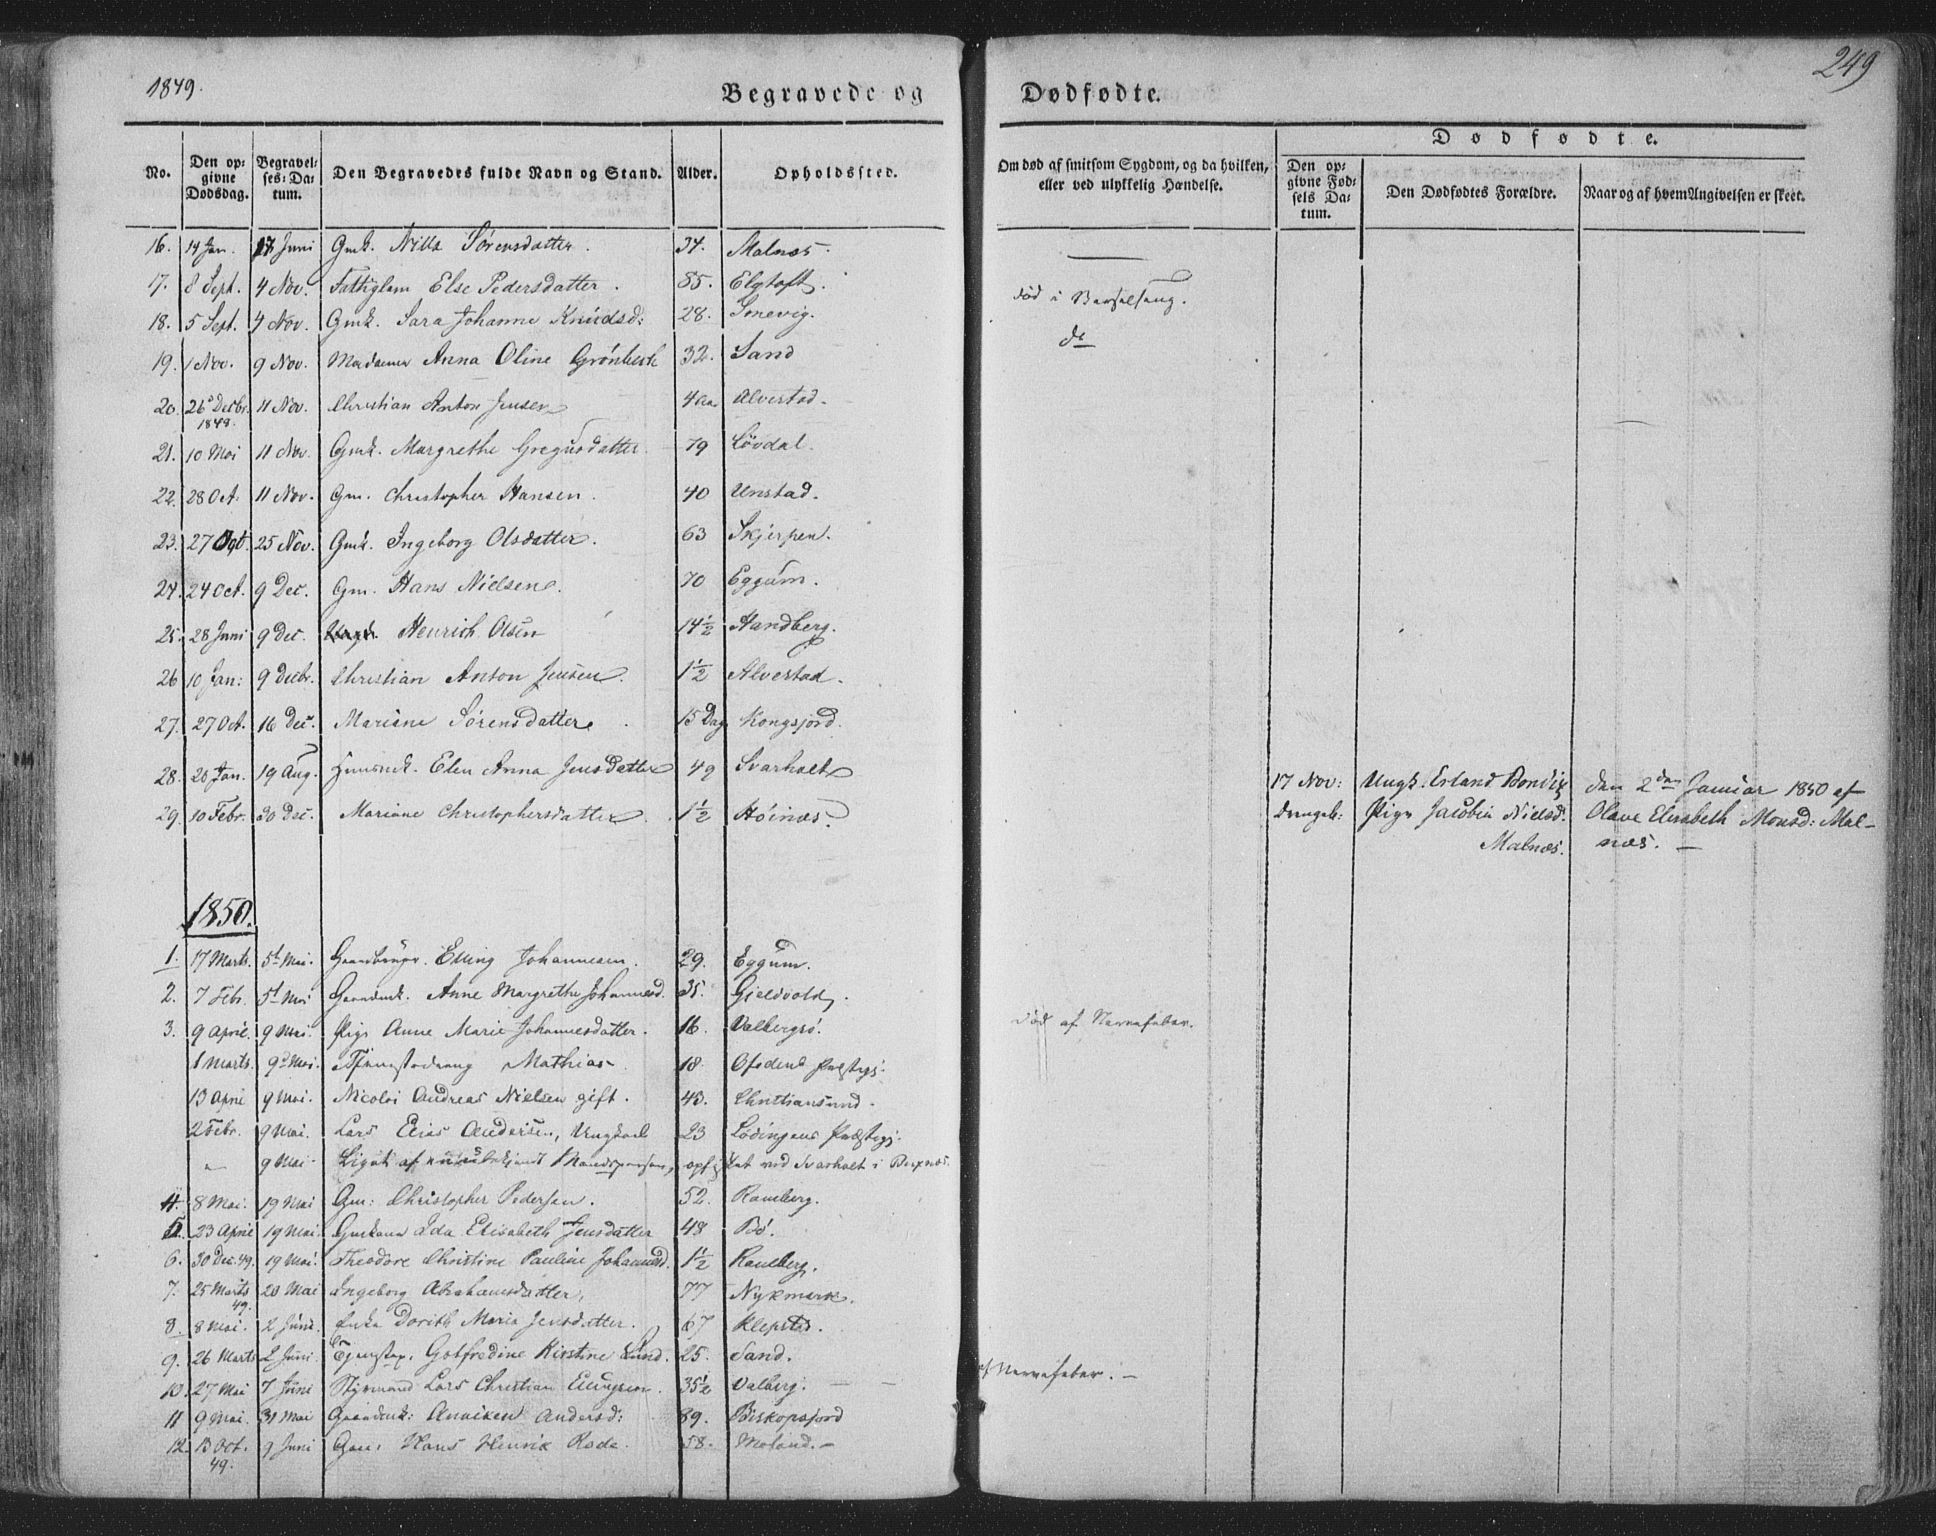 1849.
Begravede og
Dødfødte.
249
No.
Den opgivne Dødsdag.
Begravelses-Datum.
Den Begravedes fulde Navn og Stand.
Alder.
Opholdssted.
Om død af smitsom Sygdom, og da hvilken, eller ved ulykkelig Hændelse.
Dødfødte.
Den opgivne Fødsels Datum.
Den Dødfødtes Forældre.
Naar og af hvem Angivelsen er skeet.
16. 14 Jan. 17 Juni Gmk. Nille Sørensdatter. 34. Malnæs.
17. 8 Sept. 4 Nov. Fattiglem Else Pedersdatter. 85. Elgtoft.
18. 5 Sept. 4 Nov. Gmk. Sara Johanne Knudsd: 28. Sonevig. død i Barselseng.
19. 1 Nov. 9 Nov. Madame Anna Oline Grønbech 32. Sand do
20. 26 Decbr. 1848. 11 Nov. Christian Anton Jensen 4 Aar Alvestad.
21. 10 Mai 11 Nov. Gmk. Margrethe Gregusdatter 79 Løvdal.
22. 28 Oct. 11 Nov. Gm. Christopher Hansen. 40 Unstad.
23. 27 Oct 25 Nov. Gmk. Ingeborg Olsdatter. 63 Skjerpen.
24. 24 Oct. 9 Dec. Gm. Hans Nielsen. 70 Eggum.
25. 28 Juni 9 Dec. Henrich Olsen 14½ Handberg.
26 10 Jan: 9 Decbr. Christian Anton Jensen. 1½ Alvestad.
27. 27 Oct. 16 Dec. Mariane Sørensdatter. 15 Dag Kongsjord.
28. 20 Jan. 19 Aug. Huusmk. Elen Anna Jensdatter 49 Svarholt
29. 10 Febr. 20 Dec. Mariane Christophersdatter. 1½ Høinæs.
17 Nov: Ungk. Erland Bondix den 2den Januar 1850 af
drengeb: Pige Jacobin Nielsd. Olave Elisabeth Monsd: Mal-
Malnæs. næs. —
1850.
1. 17 Marts. 5t Mai. Gaardbruger Elling Johannesen. 29. Eggum.
2. 7 Febr. 5t Mai Gaardmk. Anne Margrethe Johannesd. 35. Gjeldvold.
3. 9 April. 9 Mai. Pige Anne Marie Johannesdatter. 16. Valbergsø. død af Nervefeber.
1 Marts. 9d Mai. Tjenestedreng Mathias 18. Ofodens Præstegj:
13 April 9 Mai. Nicolai Andreas Nielsen gift. 43. Christiansund.
2 Febr. 9 Mai. Lars Elias Andersen, Ungkarl 23 Lødingens Præstegj:
" 9 Mai. Liget af en ubekjendt Mandsperson, opfisket ved Svarholt i Buxnæs.
4. 8 Mai. 19 Mai Gm: Christopher Pedersen. 52. Ramberg.
5. 23 April 19 Mai. Gmkone Ida Elisabeth Jensdatter 48 Bø.
6. 30 Dec. 49. 19 Mai. Theodore Christine Pauline Johannesd. 1½ Ramberg.
7. 25 Marts 49. 20 Mai Ingeborg Abrahamsdatter. 77 Nykmark.
8. 8 Mai. 2 Juni. Enke Dorith Maria Jensdatter. 67 Klepsted.
9. 26 Marts 2 Juni. Gotfredine Kirstine Lund. 25. Sand.
10. 27 Mai 7 Juni Styrmand Lars Christian Ellingsen. 35½ Valberg. — — af Nervefeber. —
11 9 Mai. 31 Mai Gaardmk: Anniken Andersd: 89. Biskopsjord
12. 13 Oct. 49. 9 Juni Gm: Hans Henrik Rode. 58. Moland. —